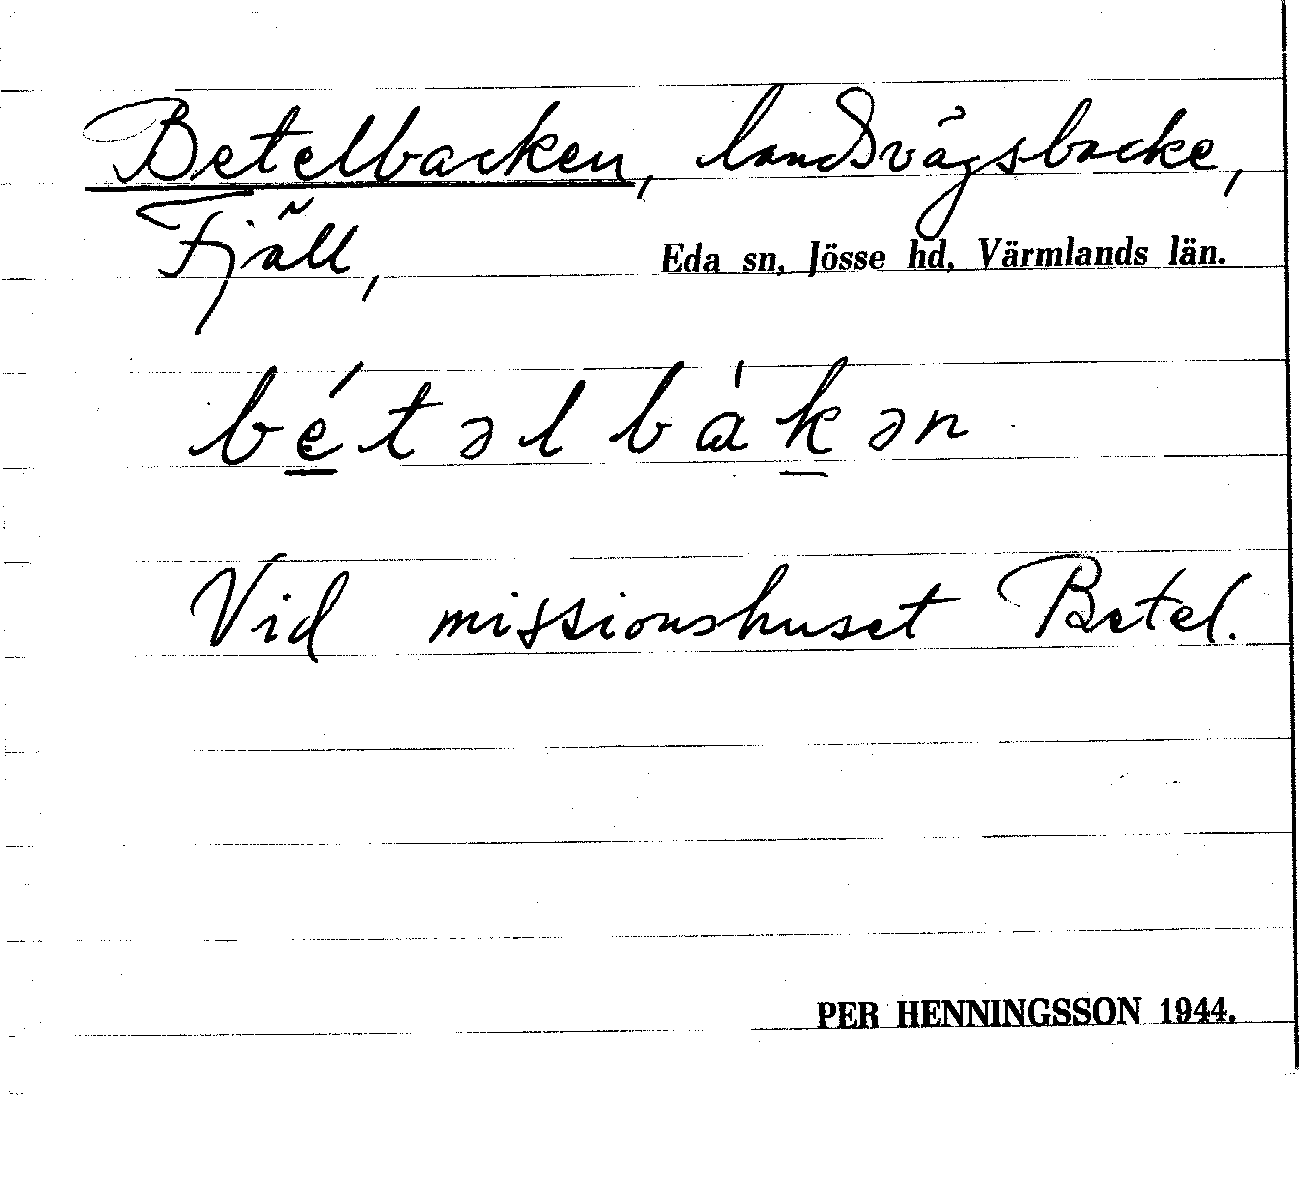 Betelbacken, landsvägsbacke,
Fjäll, Eda sn, Jösse hd, Värmlands län.
bé̱təlbàḵən
Vid missionshuset Betel.
PER HENNINGSSON 1944.